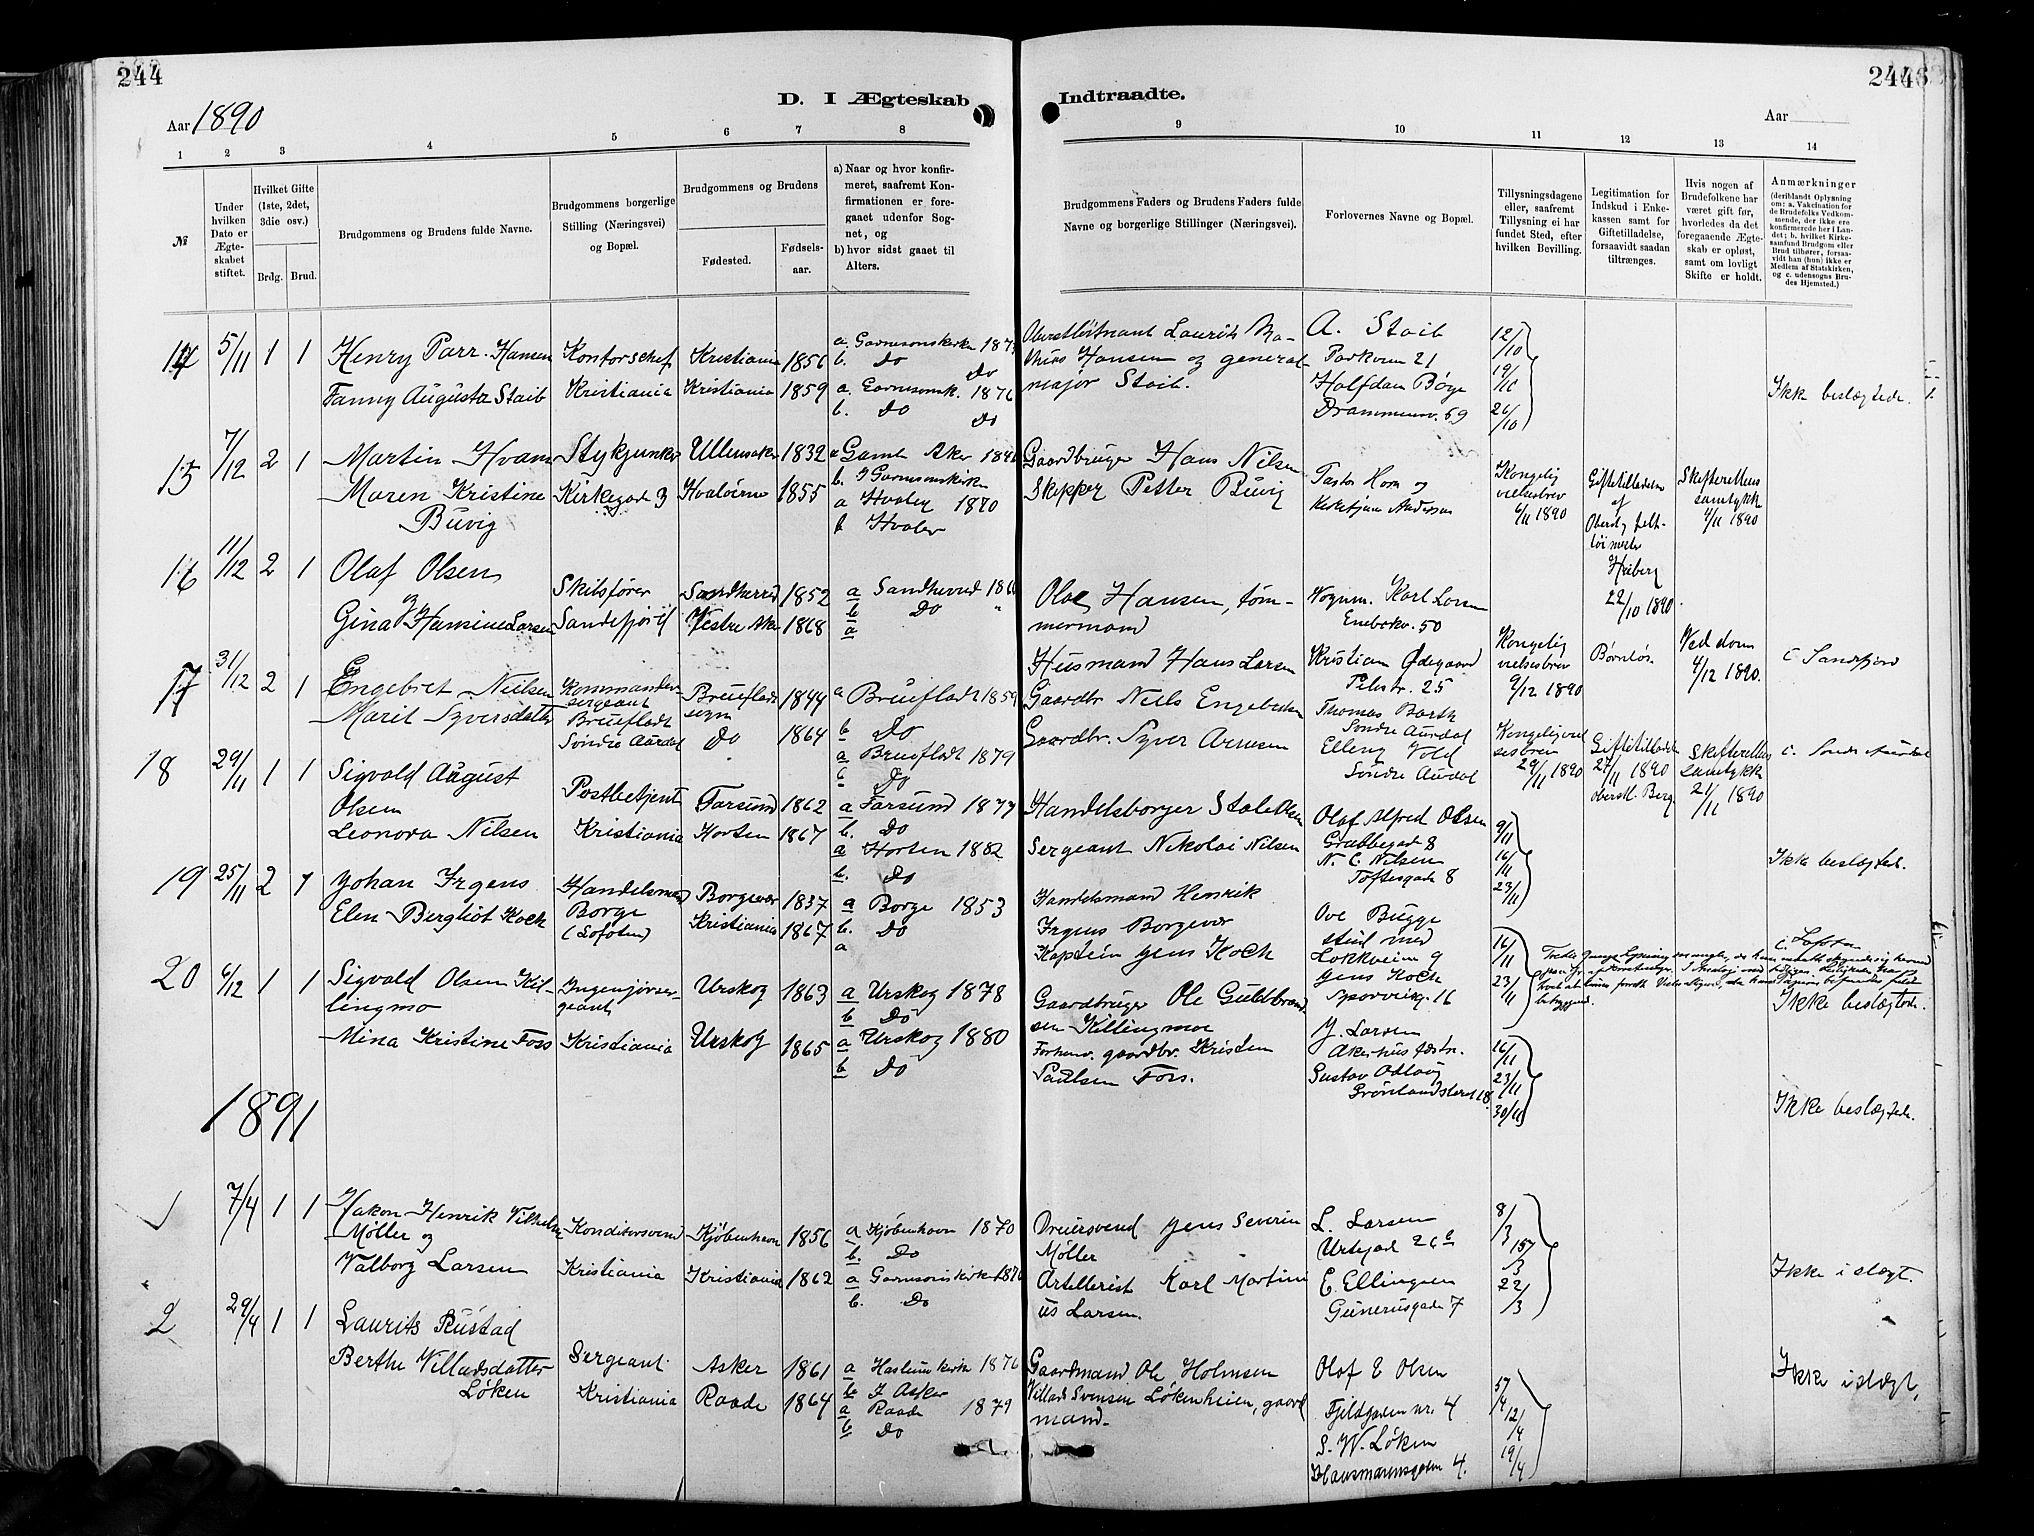 244
D. I Ægteskab
Indtraadte.
2446
Aar 1890
Aar
1 2 3 4 5 6 7 8 9 10 11 12 13 14
№
Under hvilken Dato er Ægteskabet stiftet.
Hvilket Gifte (1ste, 2det, 3die osv.)
Brdg. Brud.
Brudgommens og Brudens fulde Navne.
Brudgommens borgerlige Stilling (Næringsvei) og Bopæl.
Brudgommens og Brudens
Fødested. Fødselsaar.
a) Naar og hvor konfirmeret, saafremt Konfirmationen er foregaaet udenfor Sognet, og
b) hvor sidst gaaet til Alters.
Brudgommens Faders og Brudens Faders fulde Navne og borgerlige Stillinger (Næringsvei).
Forlovernes Navne og Bopæl.
Tillysningsdagene eller, saafremt Tillysning ei har fundet Sted, efter hvilken Bevilling.
Legitimation for Indskud i Enkekassen samt for Giftetilladelse, forsaavidt saadan tiltrænges.
Hvis nogen af Brudefolkene har været gift før, hvorledes da det foregaaende Ægteskab er opløst, samt om lovligt Skifte er holdt.
Anmærkninger
(deriblandt Oplysning om: a. Vakcination for de Brudefolks Vedkommende, der ikke ere konfirmerede her i Landet; b. hvilket Kirkesamfund Brudgom eller Brud tilhører, forsaavidt han (hun) ikke er Medlem af Statskirken, og c. udensogns Brudes Hjemsted.)
14 5/11 1 1 Henry Parr. Hansen Kontorschef Kristiania 1856 a. Garnisonskirke
b. Do Do
Fanny Augusta Staib Kristiania Kristiania 1859 a. Garnisonsk. 1876
b. Do Do
Oberstløitnant Laurits Ma-
thias Hansen og general-
major Staib.
A. Staib
Parkveien 21
Halfdan Børge
Drammensv. 69
12/10
19/10
26/10
Ikke beslægtede.
15 7/12 2 1 Martin Hvam Stykjunker Ullensaker 1832 a Gamle Aker
b. I Garnisonskirke
Maren Kristine Kirkegad 3 Hvaløerne 1855 a Hvaler 1870
Buvig b Hvaler
Gaardbruger Hans Nilsen
Skipper Petter Buvig
Pastor Horn og
Kirketjener Andersen
Kongelig
vielsesbrev
6/11 1890
Giftetilladelse
af
Oberst
Heiberg
22/10 1890.
Skifterettens
samtykke
4/11 1890
16 11/12 2 1 Olaf Olsen Skibsfører Sandherred 1852 a Sandherred
b Do "
Gina Hansine Larsen Sandefjord Vestre Aker 1868 a
Ole Hansen, tøm-
mermand
Husmand Hans Larsen
Vognm. Karl Larsen
Enebakv. 50
Kristian Ødegaard
Pilestr. 25
Kongelig
vielsesbrev
9/12 1890
Børnløs.
Ved dom
4/12 1890.
c. Sandefjord
17 31/12 2 1 Engebret Nielsen Kommander-
sergeant Bruefladt
sogn 1844 a Bruefladt 1859
b Do
Marit Syversdatter Bruefladt
Søndre Aurdal Do 1864 a Bruefladt 1879
b Do
Gaardbr. Niels Engebretsen
Gaardbr. Syver Arnesen
Thomas Barth
Søndre Aurdal
Elling Vold
Søndre Aurdal
Kongeligviel
sesbrev
29/11 1890
Giftetilladelse
27/11 1890
oberstl. Berg.
Skifterettens
Samtykke
21/11 1890
c. Søndre Aurdal
18 29/11 1 1 Sigvald August
Olsen Postbetjent Farsund 1862 a Farsund 1877
b. Do
Leonora Nilsen Kristiania Horten 1867 a Horten 1882
b. Do
Handelsborger Stale Olsen
Sergeant Nikolai Nilsen
Olaf Alfred Olsen
Grubbegad 8
N. C. Nilsen
Toftesgade 8
9/11
16/11
23/11
Ikke beslægtede.
19 25/11 2 1 Johan Irgens Handelsmand Borgevær 1837 a Borge 1853
b. Do
Elen Bergliot Koch Borge
(Lofoten) Kristiania 1867 a
Handelsmand Henrik
Irgens Borgevær
Kaptein Jens Koch
Ove Bugge
stud med
Løkkveien 9
Jens Koch
Sporveisg. 16
16/11
23/11
c. Lofoten
Ikke beslægtede.
20 6/12 1 1 Sigvald Olsen Kil-
lingmo Ingeniørser-
geant Urskog 1863 a Urskog 1878
b Do
Mina Kristine Foss Kristiania Urskog 1865 a Urskog 1880
b Do
Gaardbruger Ole Guldbrand
sen Killingmoe
Forhenv. gaardbr. Kristen
Paulsen Foss.
J. Larsen
Akershus fæstn.
Gustav Odlaug
Grønlandsleret 18.
16/11
23/11
30/11
Ikke beslægtede.
1891
1 7/4 1 1 Hakon Henrik Vilhelm
Møller og Konditorsvend Kjøbenhavn 1856 a Kjøbenhavn 1870
b. Do
Valborg Larsen Kristiania Kristiania 1862 a Garnisonskirke
b. Do
Dreiersvend Jens Severin
Møller
Artillerist Karl Martini
us Larsen.
L. Larsen
Urtegad
E. Ellingsen
Gunerusgade 7
8/3
15/3
22/3
Ikke i slægt.
2 29/4 1 1 Laurits Rustad Sergeant Asker 1861 a Haslum kirke 1876
b I Asker
Berthe Villadsdatter
Løken Kristiania Raade 1864 a Raade 1879
b Do
Gaardmand Ole Holmsen
Villads Svensen Løkenheien, gaard
mand.
Olaf E Olsen
Fjeldgaden nr. 4
S. W. Løken
Hausmannsgaden 4.
5/4
12/4
19/4
Ikke i slægt.